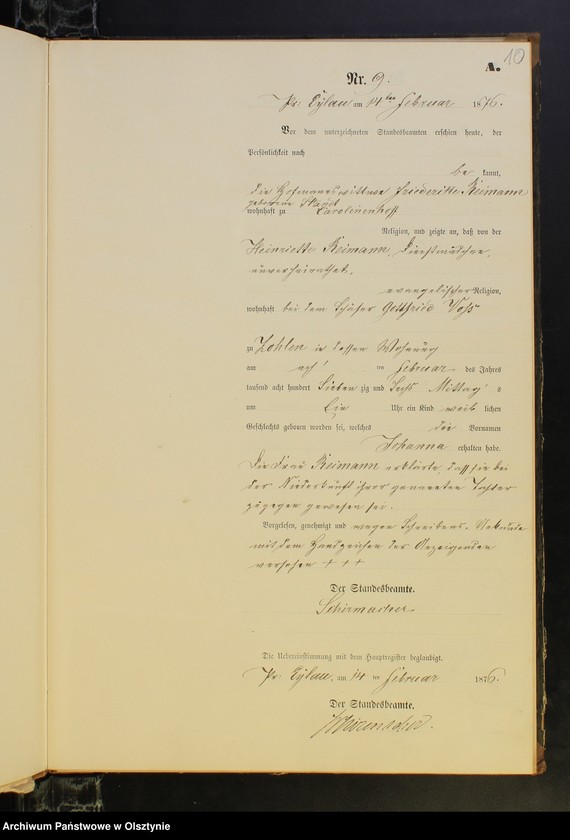 A. 10
Nr. 9.
Pr. Eylau am 14ten Februar 1876.
Vor dem unterzeichneten Standesbeamten erschien heute, der
Persönlichkeit nach
be kannt,
die Hofmannswittwe Friederike Reimann
geborene
wohnhaft zu Carolinenhoff
Religion, und zeigte an, daß von der
Henriette Reimann, Dienstmädchen,
unverheirathet,
evangelischer Religion,
wohnhaft bei dem Schäfer Gottfried Voss
zu Zohlen in dessen Wohnung
am acht ten Februar des Jahres
tausend acht hundert Sieben zig und Sechs Mittag s
um Ein Uhr ein Kind weib lichen
Geschlechts geboren worden sei, welches die Vornamen
Johanna erhalten habe.
Die Frau Reimann erklärte, dass sie bei
der Niederkunft ihrer genannten Tochter
zugegen gewesen sei.
Vorgelesen, genehmigt und wegen Schreibens-Unkunde
mit dem Handzeichen der Anzeigenden
versehen + + +
Der Standesbeamte.
Schirmacher
Die Uebereinstimmung mit dem Hauptregister beglaubigt.
Pr. Eylau, am 14 ten Februar 1876.
Der Standesbeamte.
Archiwum Państwowe w Olsztynie